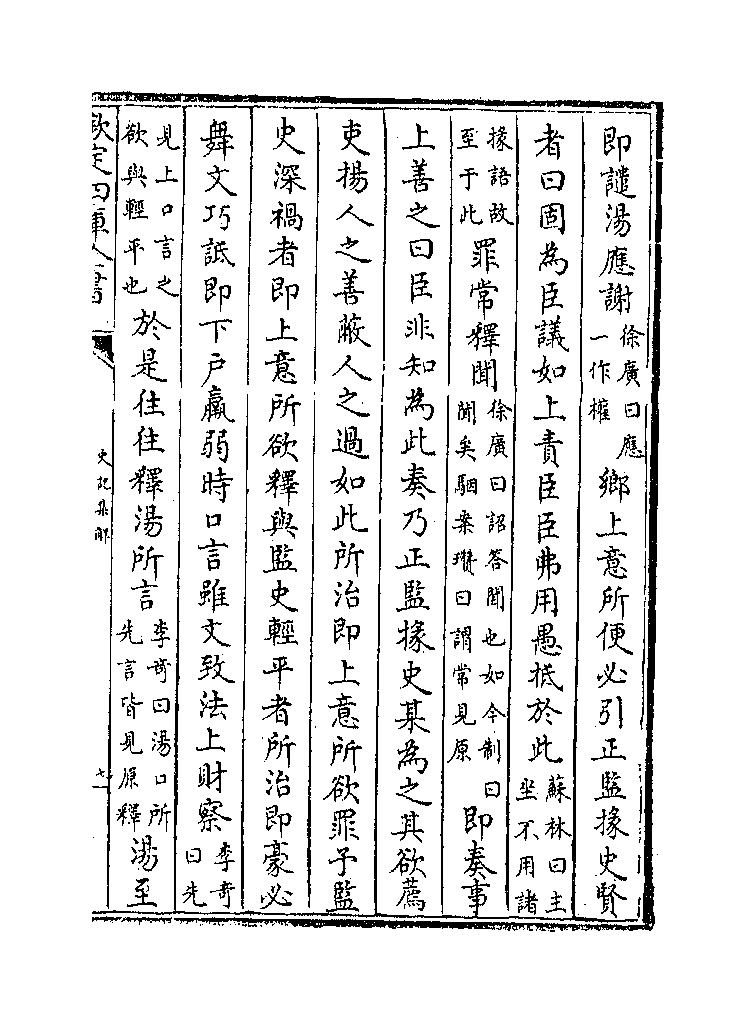 即譴湯應謝徐廣曰應一作權鄉上意所便必引正監掾史賢
者曰固為臣議如上責臣臣弗用愚抵於此蘇林曰主坐不用諸
掾語故至于此罪常釋聞徐廣曰詔答聞也如今制曰聞矣駰案瓚曰謂常見原即奏事
上善之曰臣非知為此奏乃正監掾史某為之其欲薦
吏揚人之善蔽人之過如此所治即上意所欲罪予監
史深禍者即上意所欲釋與監史輕平者所治即豪必
舞文巧詆即下户羸弱時口言雖文致法上財察李奇曰先
見上口言之欲與輕平也於是往往釋湯所言李奇曰湯口所先言皆見原釋湯至
欽定四庫全書
史記集解